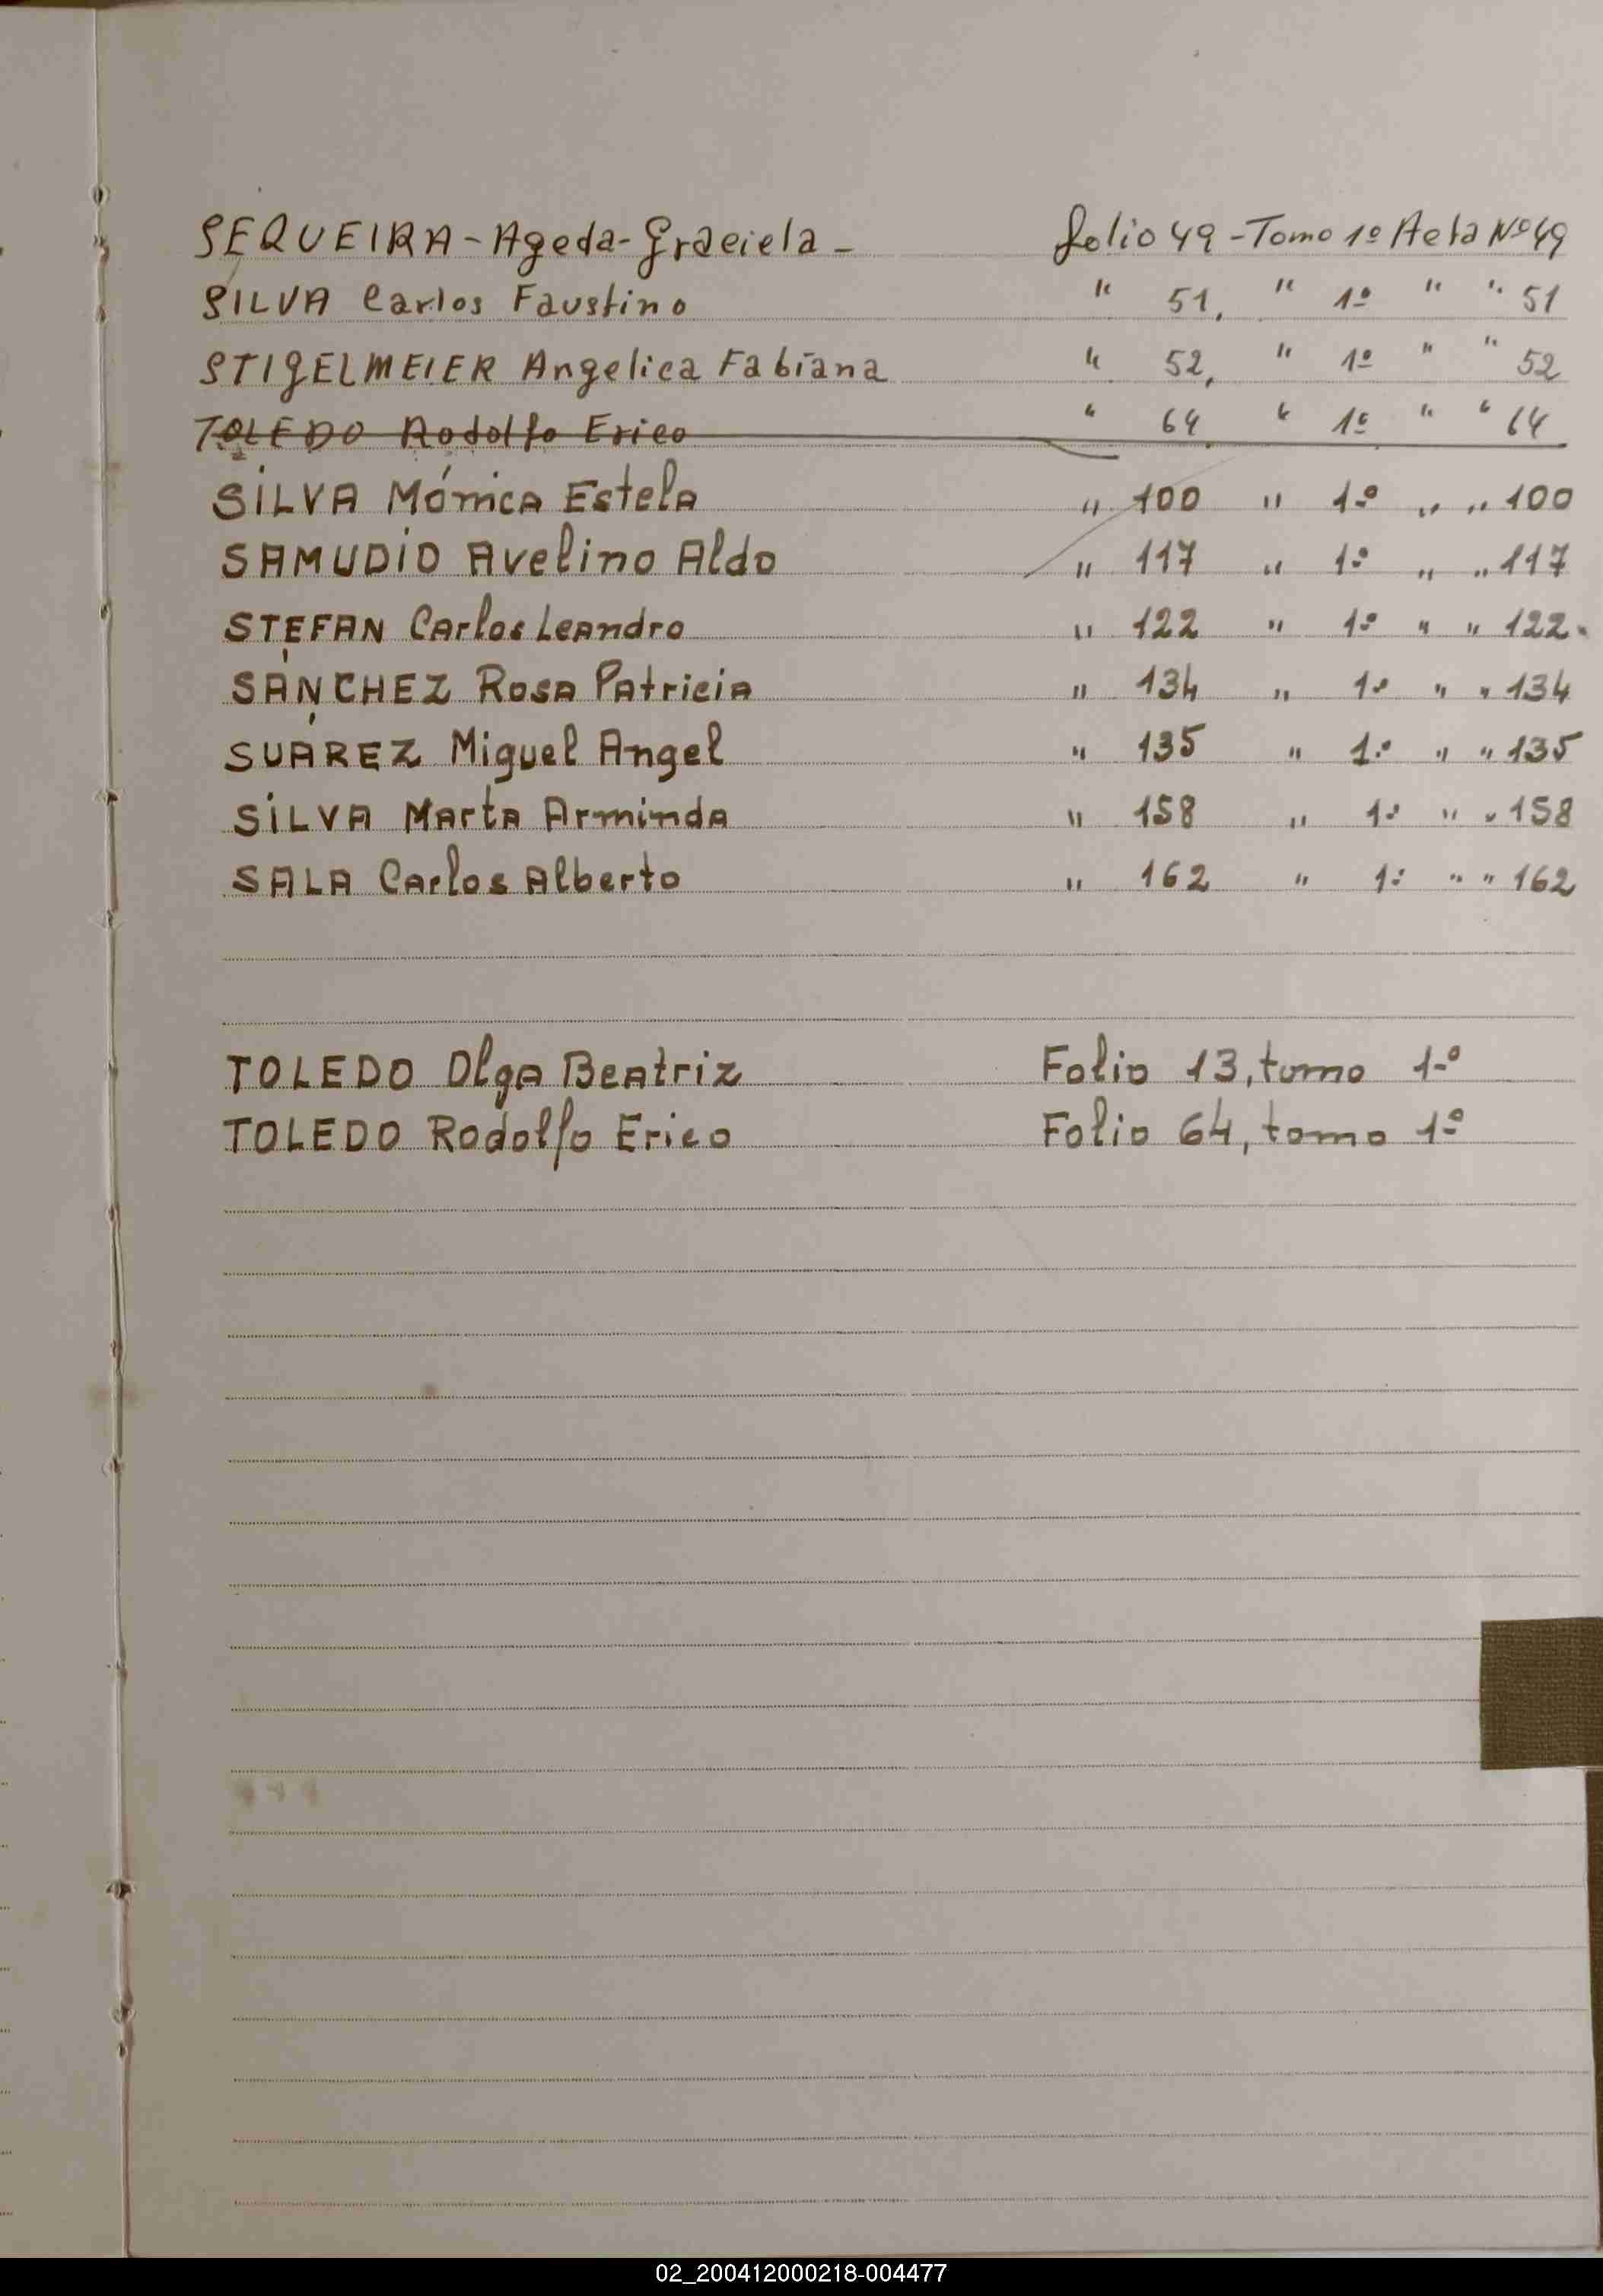 SEQUEIRA - Ageda - Graciela - folio 49 - Tomo 1º Acta Nº 49
SILVA Carlos Faustino " 51, " 1º " " 51
STIGELMEIER Angelica Fabiana " 52, " 1º " " 52
TOLEDO Rodolfo Erico " 64 " 1º " " 64
SILVA Mónica Estela " 100 " 1º " " 100
SAMUDIO Avelino Aldo " 117 " 1º " " 117
STEFAN Carlos Leandro " 122 " 1º " " 122.
SÁNCHEZ Rosa Patricia " 134 " 1º " " 134
SUÁREZ Miguel Angel " 135 " 1º " " 135
SILVA Marta Arminda " 158 " 1º " " 158
SALA Carlos Alberto " 162 " 1º " " 162
TOLEDO Olga Beatriz Folio 13, tomo 1º
TOLEDO Rodolfo Erico Folio 64, tomo 1º
02_200412000218-004477